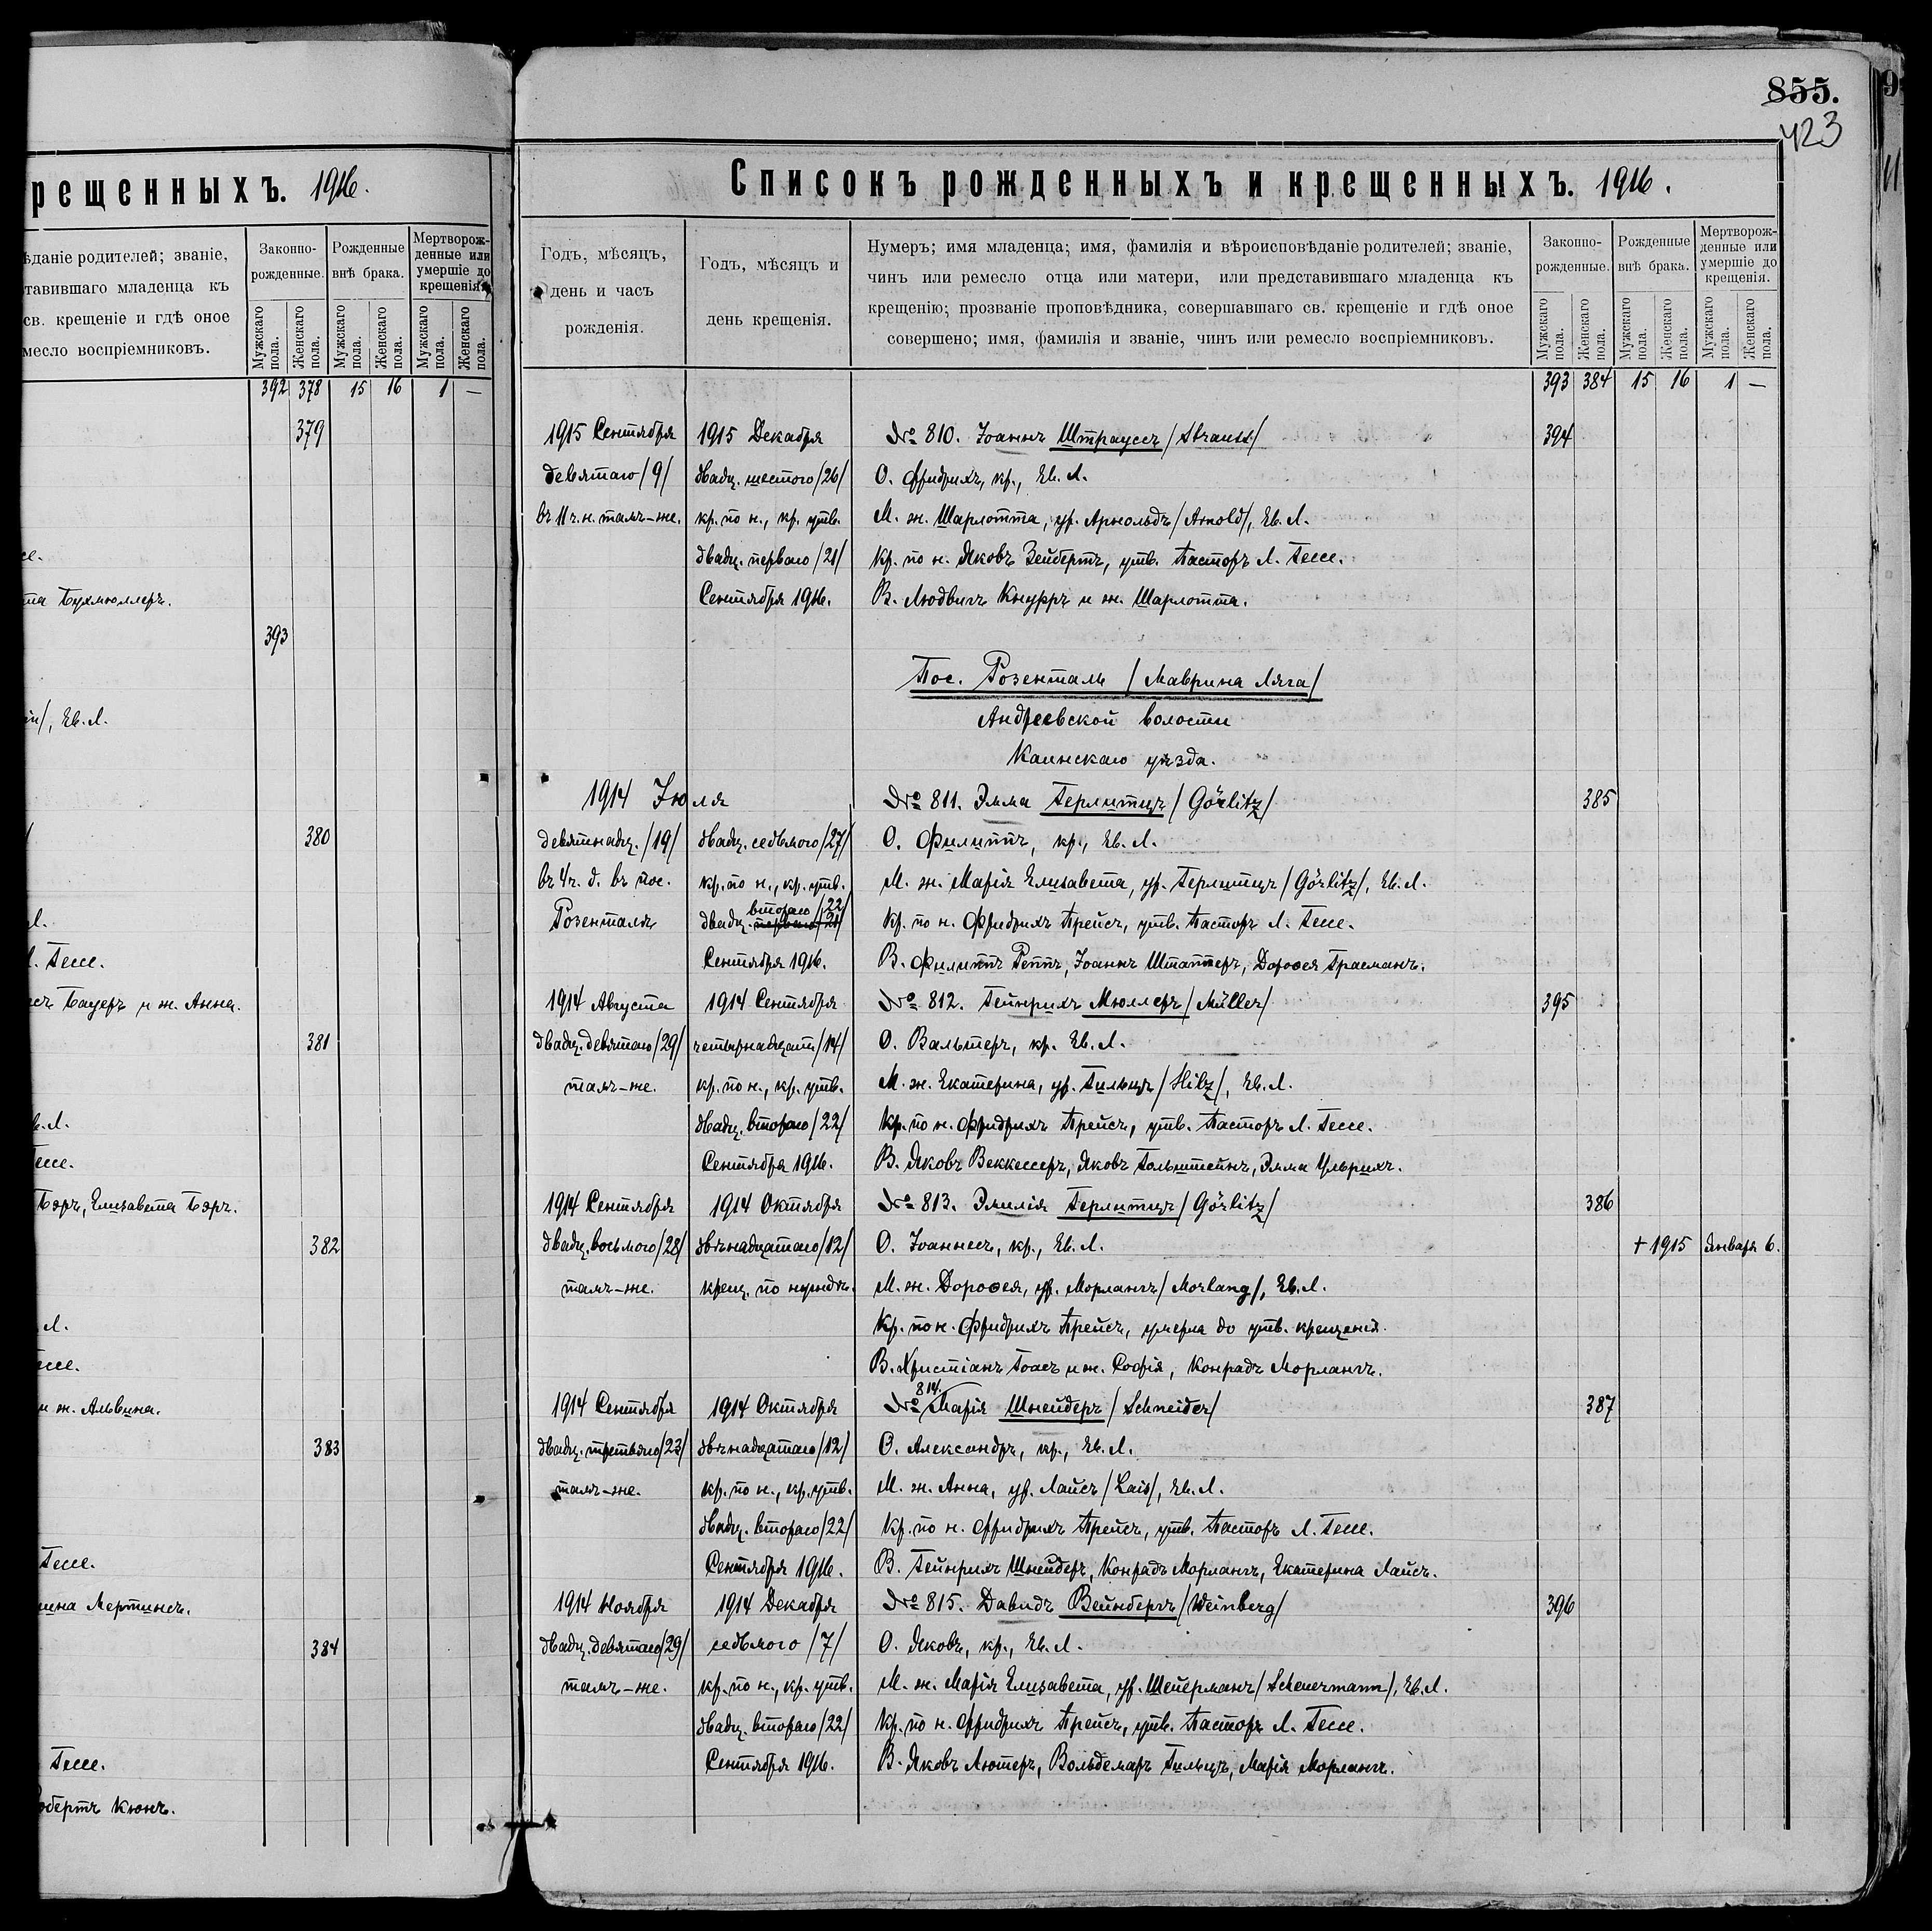 рещенныхъ. 1916.
ѣданіе родителей; званіе,
тавившаго младенца къ
св. крещеніе и гдѣ оное
месло воспріемниковъ.
Законно-рожденные.
Рожденные внѣ брака.
Мертворож-денные или умершіе до крещенія.
Мужскаго пола. Женскаго пола. Мужскаго пола. Женскаго пола. Мужскаго пола. Женскаго пола.
392 378 15 16 1 —
379
се.
та Бухмюллеръ.
393
/, Ев. Л.
380
Л.
Л. Гессе.
Бауеръ и ж. Анна.
381
в. Л.
ессе.
Бэръ, Елизавета Бэръ.
382
Л.
ессе.
и ж. Альвина.
383
Гессе.
ина Мертинсъ.
384
Гессе.
обертъ Кюнъ.
855.
423
Списокъ рожденныхъ и крещенныхъ. 1916.
Годъ, мѣсяцъ,
день и часъ
рожденія.
Годъ, мѣсяцъ и
день крещенія.
Нумеръ; имя младенца; имя, фамилія и вѣроисповѣданіе родителей; званіе,
чинъ или ремесло отца или матери, или представившаго младенца къ
крещенію; прозваніе проповѣдника, совершавшаго св. крещеніе и гдѣ оное
совершено; имя, фамилія и званіе, чинъ или ремесло воспріемниковъ.
Законно-рожденные.
Рожденные внѣ брака.
Мертворож-денные или умершіе до крещенія.
Мужскаго пола. Женскаго пола. Мужскаго пола. Женскаго пола. Мужскаго пола. Женскаго пола.
393 384 15 16 1 —
1915 Сентября 1915 Декабря № 810. Іоаннъ Штрауссъ /Strauss/ 394
девятаго /9/ двадц. шестого /26/ О. Фридрихъ, кр., Ев. Л.
въ 11 ч. н. тамъ-же. кр. по н., кр. утв. М. ж. Шарлотта, ур. Арнольдъ /Arnold/, Ев. Л.
двадц. перваго /21/ Кр. по н. Яковъ Зейбертъ, утв. Пасторъ Л. Гессе.
Сентября 1916. В. Людвигъ Кнурръ и ж. Шарлотта.
Пос. Розенталь /Маврина Ляга/
Андреевской волости
Каинскаго уѣзда.
1914 Іюля № 811. Эмма Герлитцъ /Görlitz/ 385
девятнадц. /19/ двадц. седьмого /27/ О. Филиппъ, кр., Ев. Л.
въ 4 ч. д. въ пос. кр. по н., кр. утв. М. ж. Марія Елизавета, ур. Герлитцъ /Görlitz/, Ев. Л.
второго /22/
Розенталь двадц. перваго /21/ Кр. по н. Фридрихъ Прейсъ, утв. Пасторъ Л. Гессе.
Сентября 1916. В. Филиппъ Реппъ, Іоаннъ Штаптеръ, Дороѳея Грасманъ.
1914 Августа 1914 Сентября № 812. Гейнрихъ Мюллеръ /Müller/ 395
двадц. девятаго /29/ четырнадцат /14/ О. Вальтеръ, кр. Ев. Л.
тамъ-же. кр. по н., кр. утв. М. ж. Екатерина, ур. Гильцъ /Hilz/, Ев. Л.
двадц. второго /22/ Кр. по н. Фридрихъ Прейсъ, утв. Пасторъ Л. Гессе.
Сентября 1916. В. Яковъ Веккессеръ, Яковъ Гольштейнъ, Эмма Ульрихъ.
1914 Сентября 1914 Октября № 813. Эмилія Герлитцъ /Görlitz/ 386
двадц. восьмого /28/ двѣнадцатаго /12/ О. Іоаннесъ, кр., Ев. Л. + 1915 Января 6.
тамъ-же. крещ. по нуждѣ. М. ж. Дороѳея, ур. Морлангъ /Morlang/, Ев. Л.
Кр. по н. Фридрихъ Прейсъ, умерла до утв. крещенія.
В. Христіанъ Гоасъ и ж. Софія, Конрадъ Морлангъ.
814.
1914 Сентября 1914 Октября № Марія Шнейдеръ /Schneider/ 387
двадц. третьяго /23/ двѣнадцатаго /12/ О. Александръ, кр., Ев. Л.
тамъ-же. кр. по н., кр. утв. М. ж. Анна, ур. Лайсъ /Lais/, Ев. Л.
двадц. второго /22/ Кр. по н. Фридрихъ Прейсъ, утв. Пасторъ Л. Гессе.
Сентября 1916. В. Гейнрихъ Шнейдеръ, Конрадъ Морлангъ, Екатерина Лайсъ.
1914 Ноября 1914 Декабря № 815. Давидъ Вейнбергъ /Weinberg/ 396
двадц. девятаго /29/ седьмого /7/ О. Яковъ, кр., Ев. Л.
тамъ-же. кр. по н., кр. утв. М. ж. Марія Елизавета, ур. Шейерманъ /Scheuermann/, Ев. Л.
двадц. второго /22/ Кр. по н. Фридрихъ Прейсъ, утв. Пасторъ Л. Гессе.
Сентября 1916. В. Яковъ Лютеръ, Вольдемаръ Гильцъ, Марія Морлангъ.